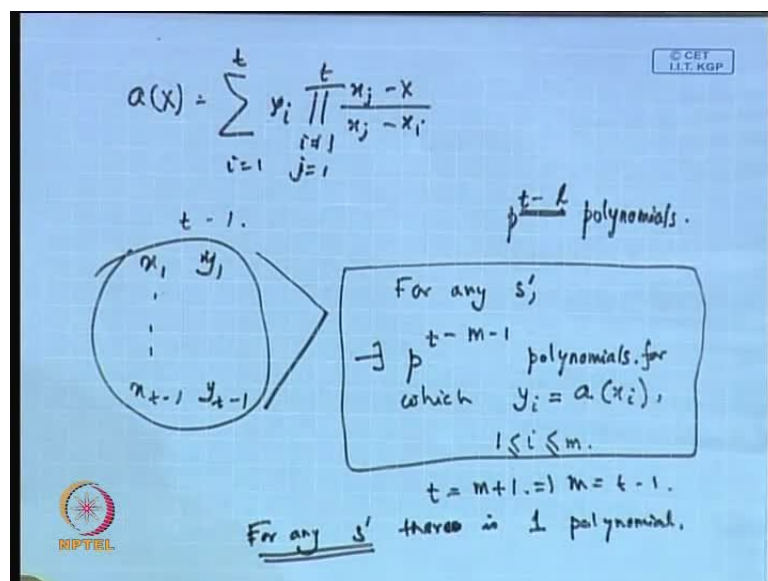 © CET
I.I.T. KGP
a(X) = \sum_{i=1}^{t} y_i \prod_{i≠j, j=1}^{t} \frac{x_j - X}{x_j - x_i}
t - 1.
p^{t-l} polynomials.
x_1 y_1
x_{t-1} y_{t-1}
For any s',
∃ p^{t-m-1} polynomials. for
which y_i = a(x_i),
1 ≤ i ≤ m.
t = m+1. ⇒ m = t - 1.
For any s' there is 1 polynomial.
NPTEL